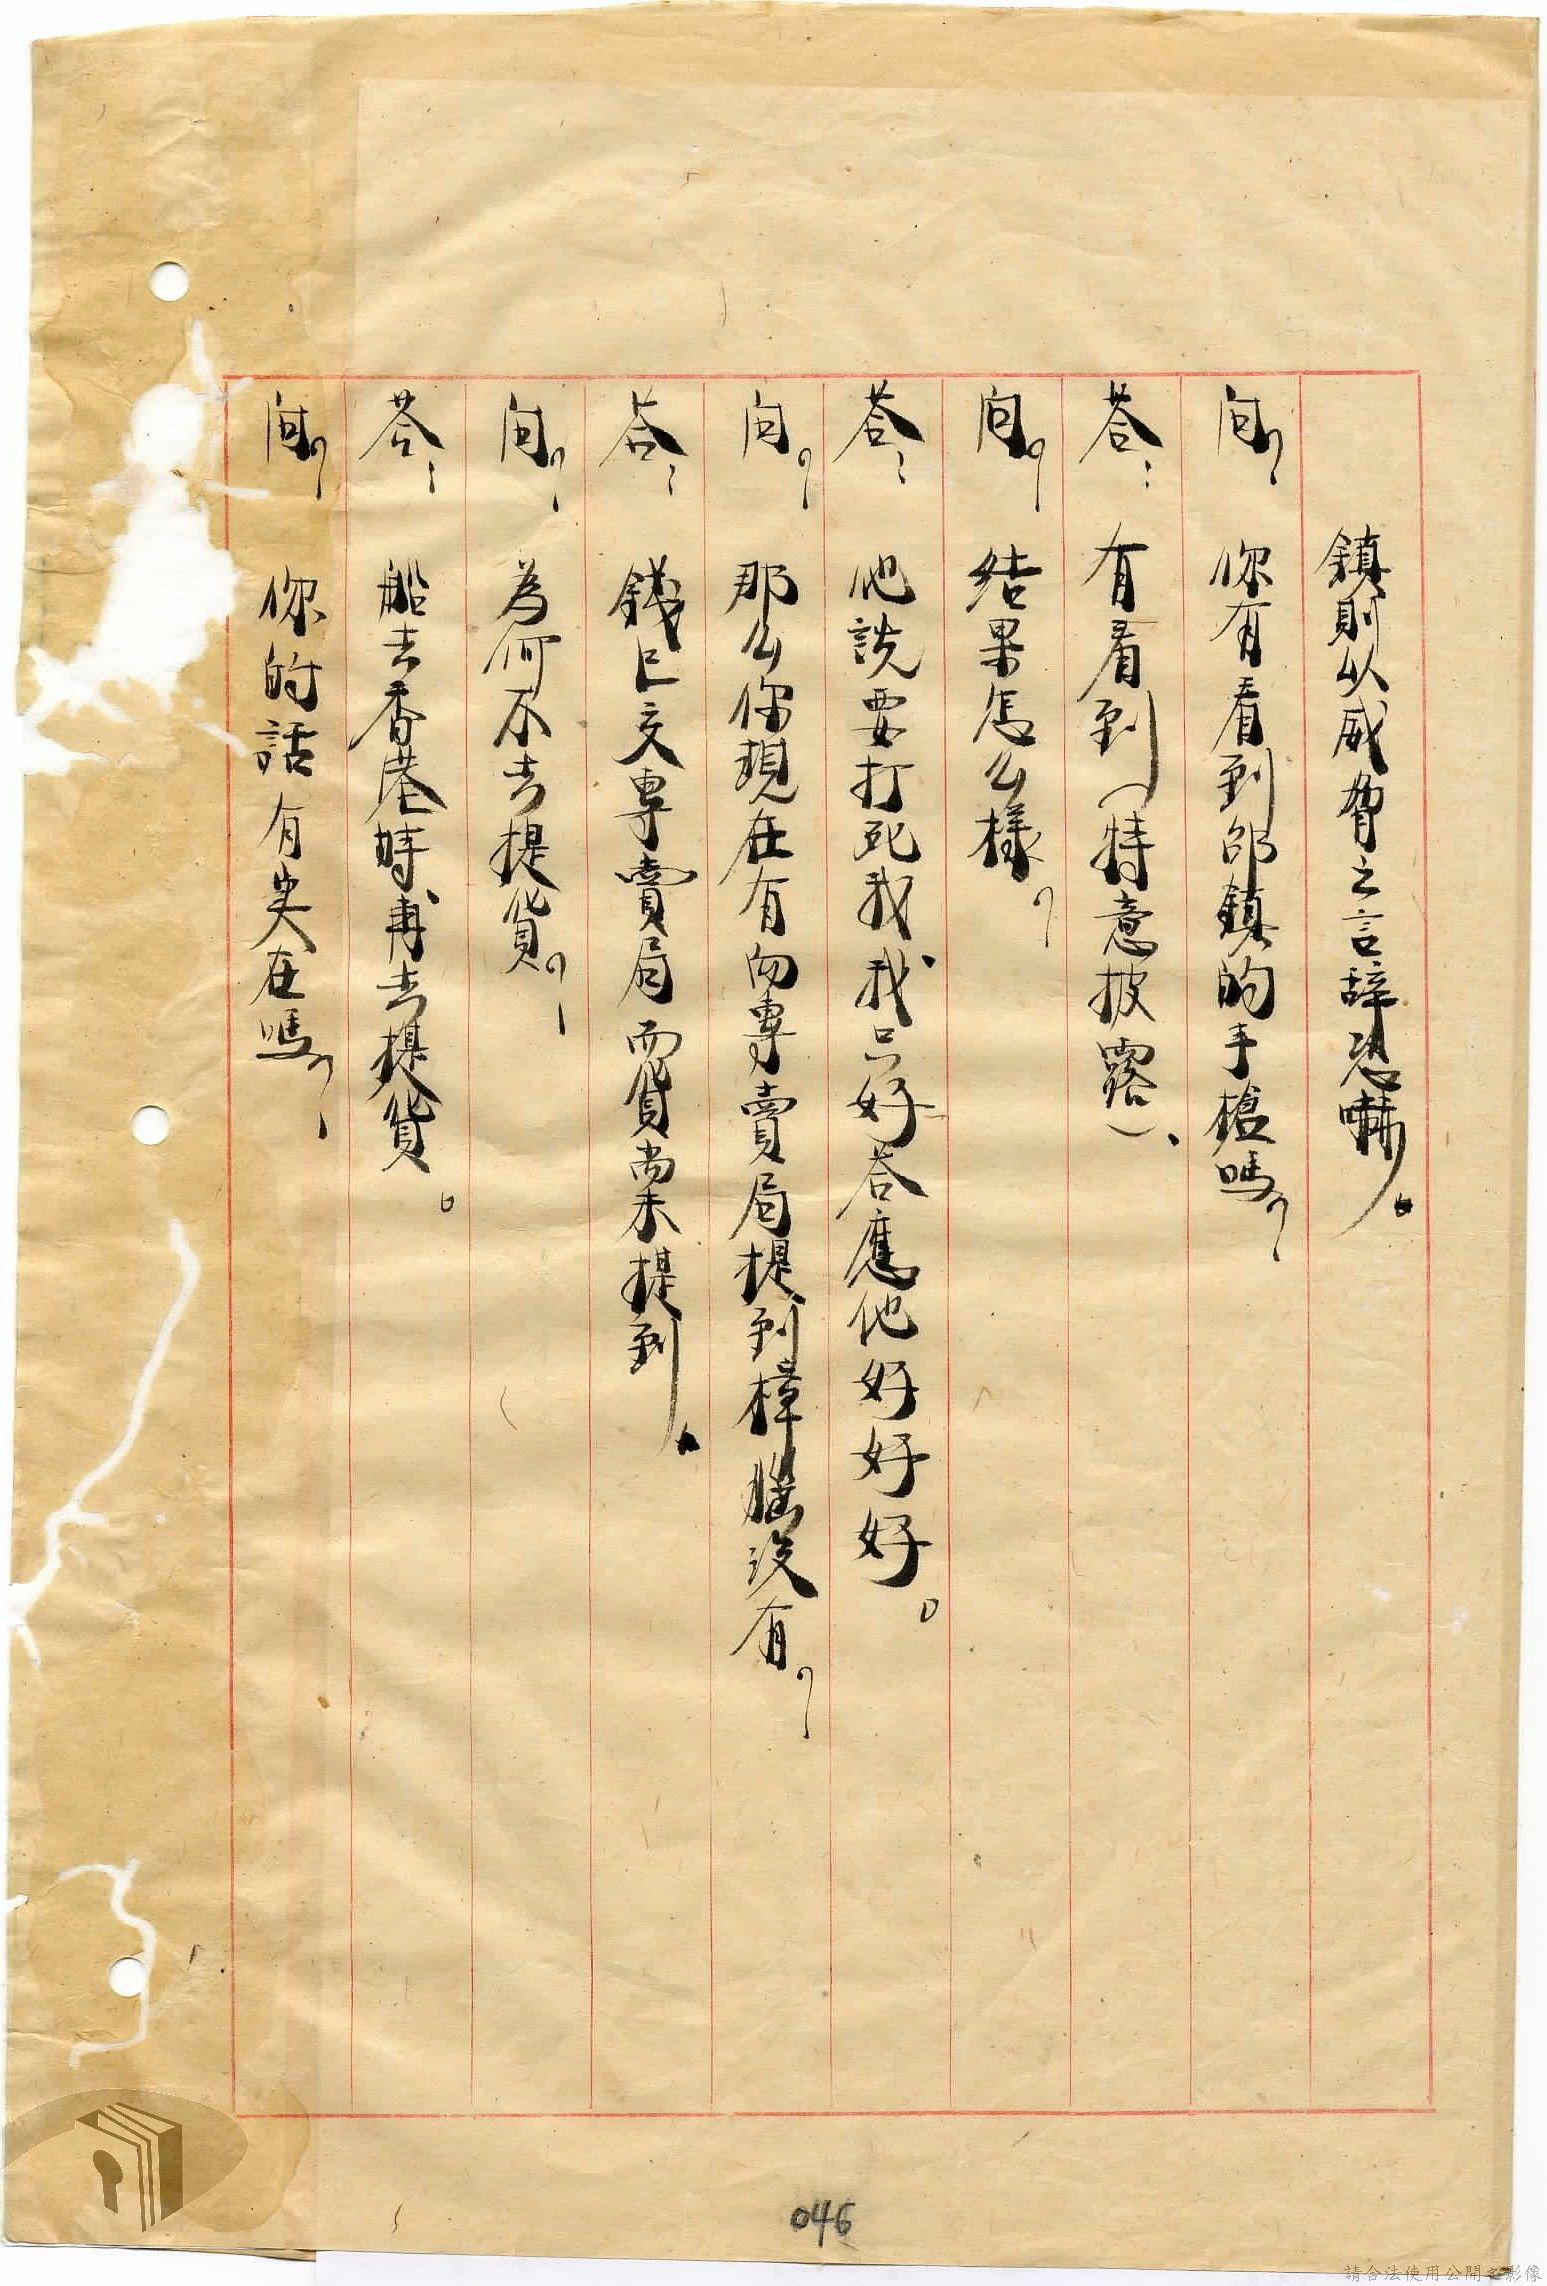 鎮則以威脅之言辞恐嚇。
问？你有看到邵鎮的手槍嗎？
荅：有看到（特意披露）、
问？结果怎么樣？
荅：他説要打死我、我只好荅應他好好好。
问？那么你現在有向專賣局提到樟腦没有？
荅：錢已交專賣局而貨尚未提到。
问？為何不去提貨？
荅：船去香港時再去提貨。
问？你的話有实在嗎？
046
請合法使用公開之影像